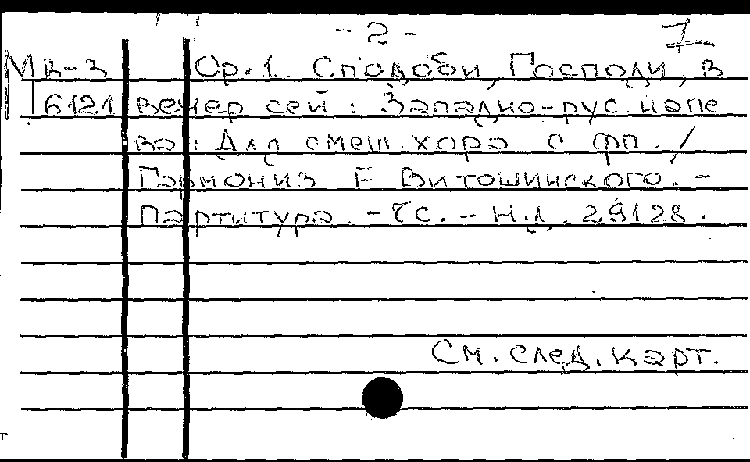 - 2 - 7
Мв-3 Ор. 1 Сподоби, Господи, в
6121 вечер сей : Западно-рус. напе
ва : Для смеш. хора с фп. /
Гармониз. Е Витошинского. -
Партитура. - 7с. - Н.д. 29128.
См. след. карт.